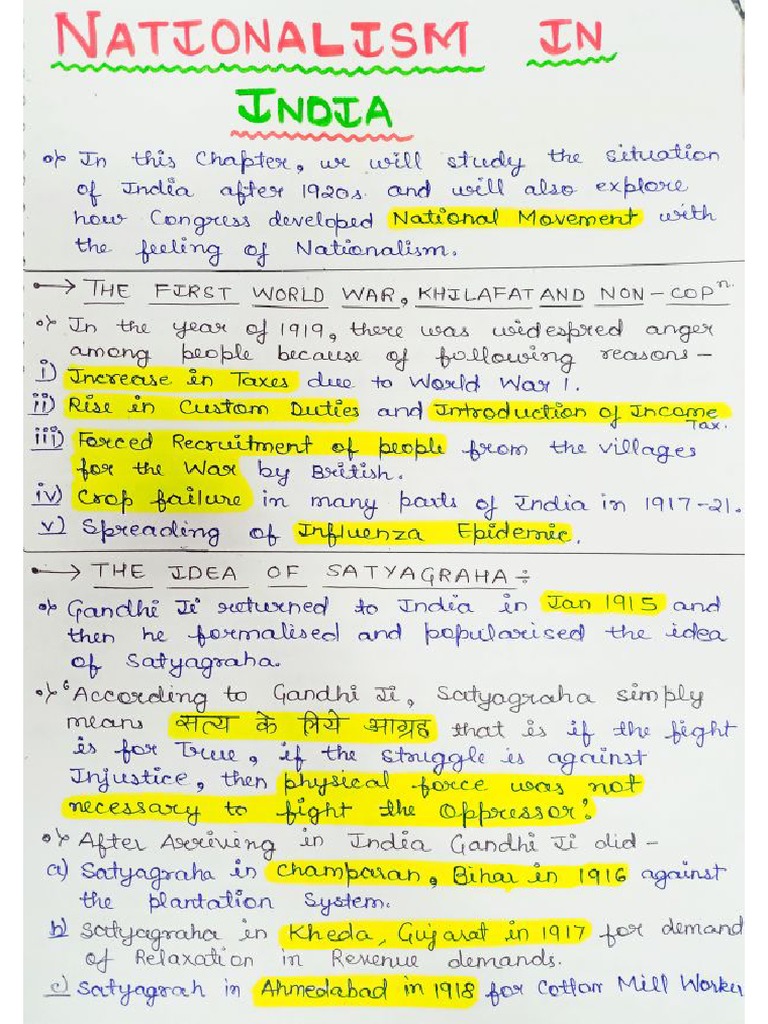 NATIONALISM IN
INDIA
In this Chapter, we will study the situation
of India after 1920s and will also explore
how Congress developed National Movement with
the feeling of Nationalism.
→ THE FIRST WORLD WAR, KHILAFAT AND NON-COPⁿ.
In the year of 1919, there was widespred anger
among people because of following reasons–
i) Increase in Taxes due to World War 1.
ii) Rise in Custom Duties and Introduction of Income
Tax.
iii) Forced Recruitment of people from the villages
for the War by British.
iv) Crop failure in many parts of India in 1917-21.
v) Spreading of Influenza Epidemic.
→ THE IDEA OF SATYAGRAHA÷
Gandhi Ji returned to India in Jan 1915 and
then he formalised and popularised the idea
of Satyagraha.
'According to Gandhi Ji, Satyagraha simply
means सत्य के लिये आग्रह that is if the fight
is for True, if the struggle is against
Injustice, then physical force was not
necessary to fight the oppressor.'
After Arriving in India Gandhi Ji did –
a) Satyagraha in Champaran, Bihar in 1916 against
the plantation System.
b) Satyagraha in Kheda, Gujarat in 1917 for demand
of Relaxation in Revenue demands.
c) Satyagrah in Ahmedabad in 1918 for Cotton Mill Worker